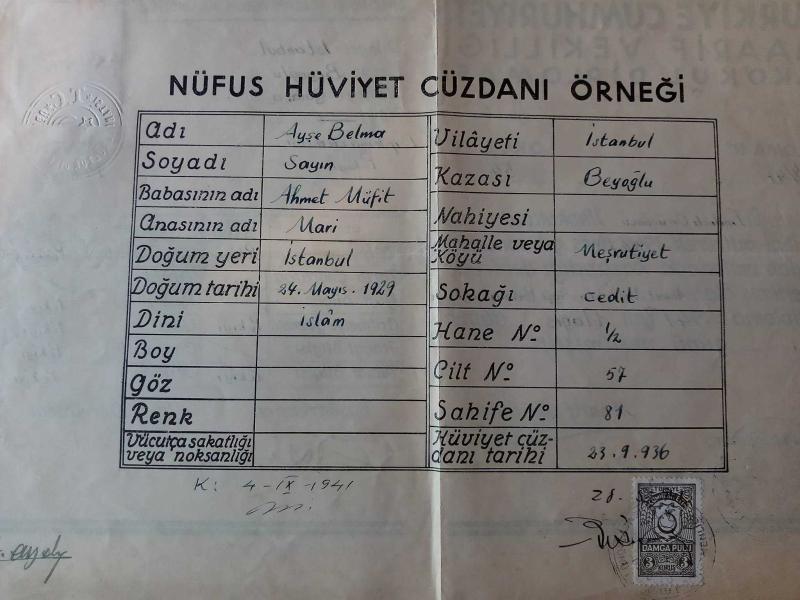 NÜFUS HÜVİYET CÜZDANI ÖRNEĞİ
Adı Ayşe Belma
Soyadı Sayın
Babasının adı Ahmet Müfit
Anasının adı Mari
Doğum yeri İstanbul
Doğum tarihi 24. Mayıs. 1929
Dini islâm
Boy
Göz
Renk
Vücutça sakatlığı
veya noksanlığı
Vilâyeti İstanbul
Kazası Beyoğlu
Nahiyesi
Mahalle veya
Köyü Meşrutiyet
Sokağı cedit
Hane No 1/2
Cilt No 57
Sahife No 81
Hüviyet cüz-
danı tarihi 23.9.936
K: 4-IX-1941
28.
DAMGA PULU
3 KURUŞ 3